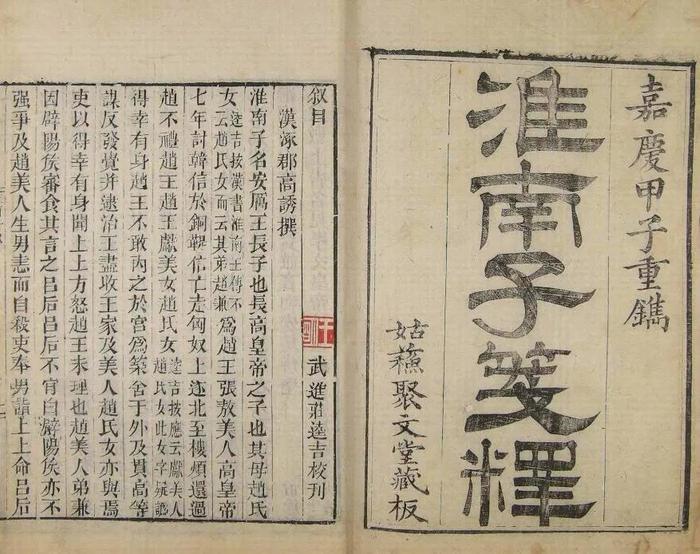 嘉慶甲子重鐫
淮南子箋釋
姑蘇聚文堂藏板
叙目
漢涿郡高誘撰
武進莊逵吉校刊
淮南子名安厲王長子也長高皇帝之子也其母趙氏
女逵吉按漢書淮南王傳不云趙氏女而云其弟趙兼爲趙王張敖美人高皇帝
七年討韓信於銅鞮信亡走匈奴上遂北至樓煩還過
趙不禮趙王趙王獻美女趙氏女逵吉按應云獻美人趙氏女此女字疑譌
得幸有身趙王不敢内之於宮爲築舍于外及貫高等
謀反發覺并逮治王盡收王家及美人趙氏女亦與焉
吏以得幸有身聞上上方怒趙王未理也趙美人弟兼
因辟陽侯審食其言之吕后吕后不肯白辟陽侯亦不
强爭及趙美人生男恚而自殺吏奉男詣上上命吕后